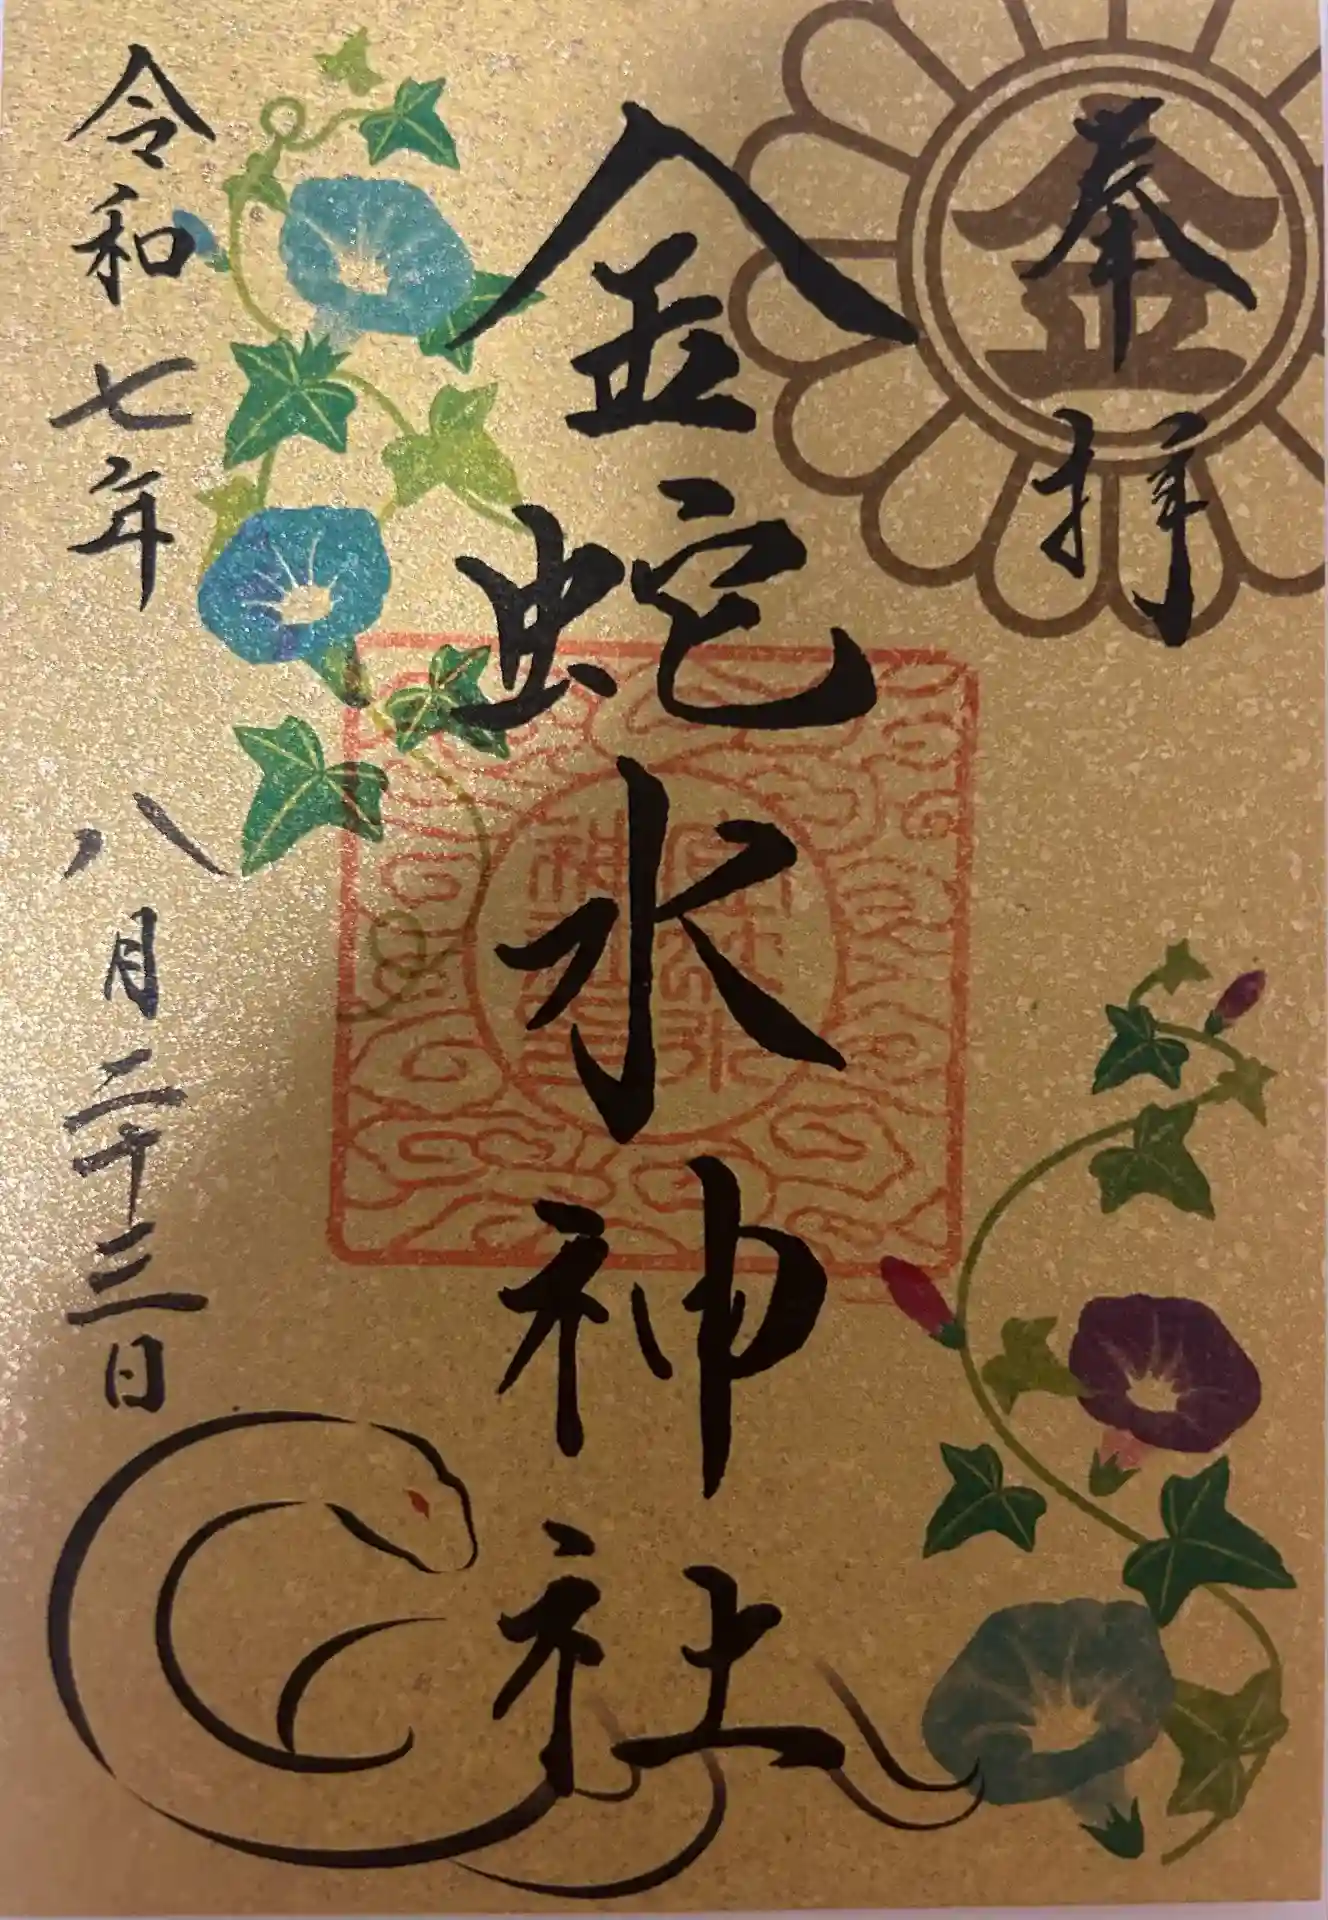 奉拝
金
金蛇水神社
令和七年八月二十三日